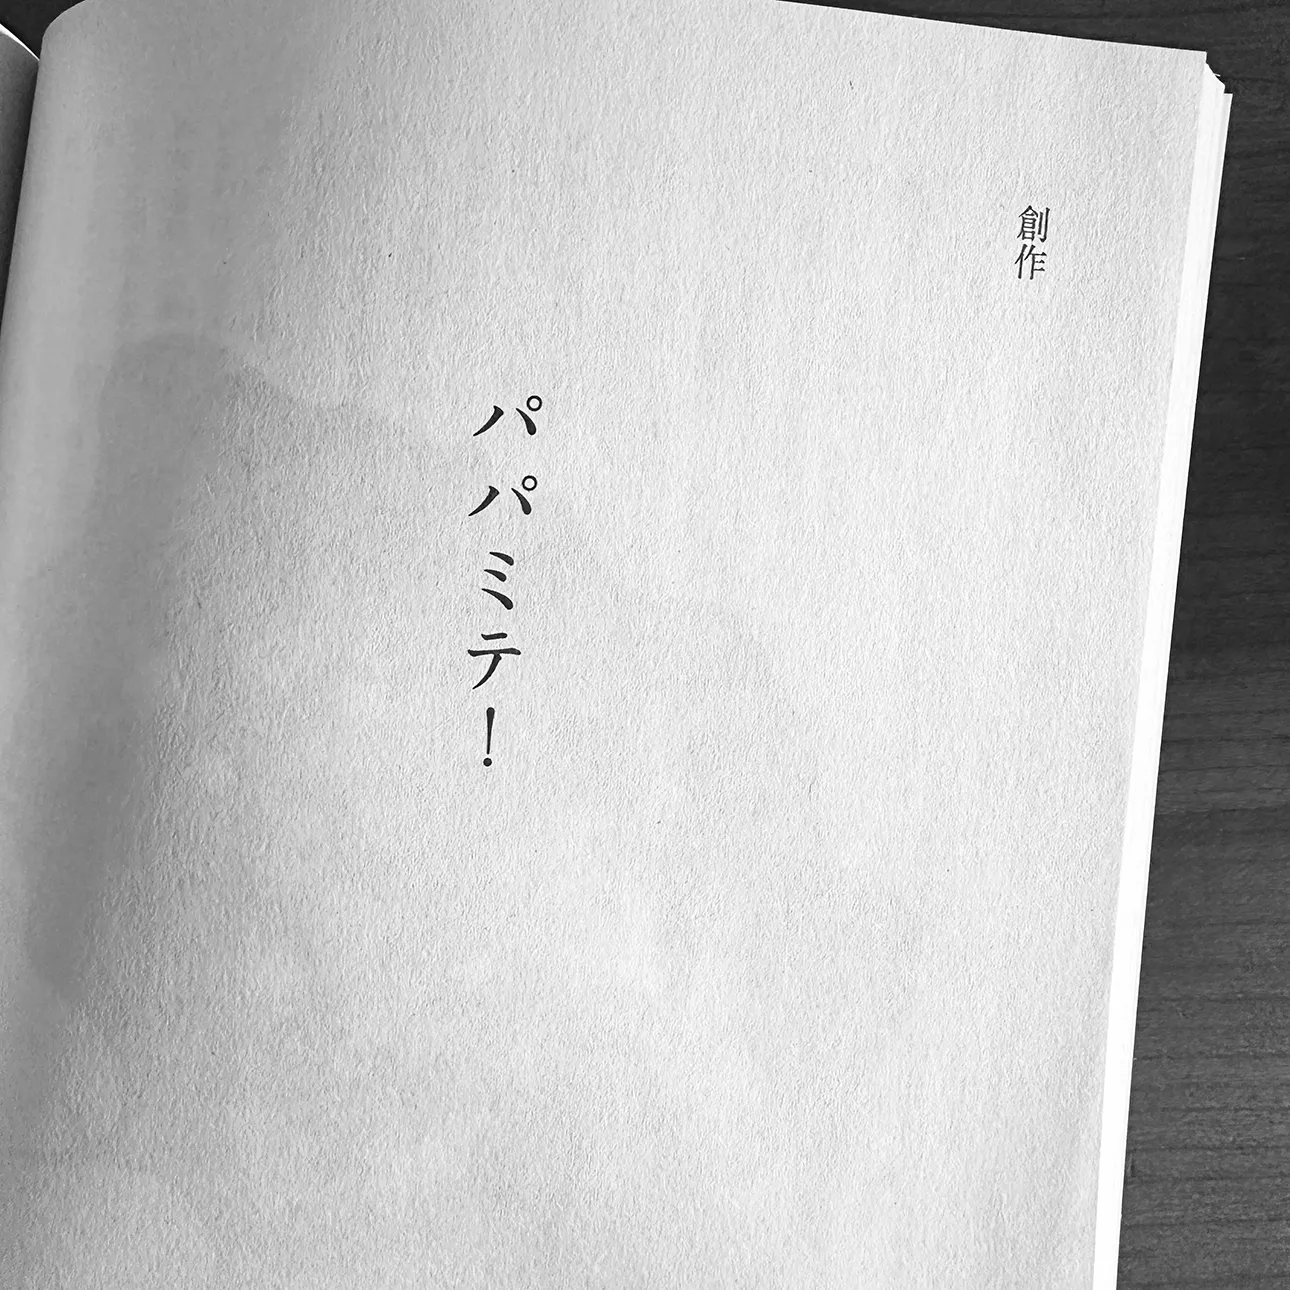 創作
パパミテ！